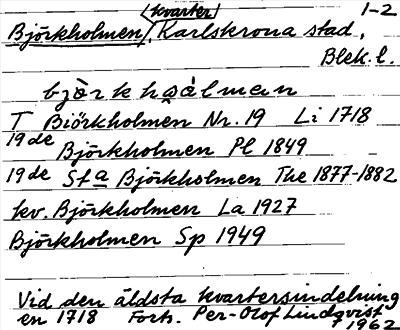 (kvarter) 1-2
Björkholmen, Karlskrona stad,
Blek. l.
T Biörkholmen Nr. 19 Li 1718
19de Björkholmen Pl 1849
19de Sta Björkholmen The 1877-1882
kv. Björkholmen La 1927
Björkholmen Sp 1949
Vid den äldsta kvartersindelning
en 1718 Forts. Per-Olof Lindqvist
1962